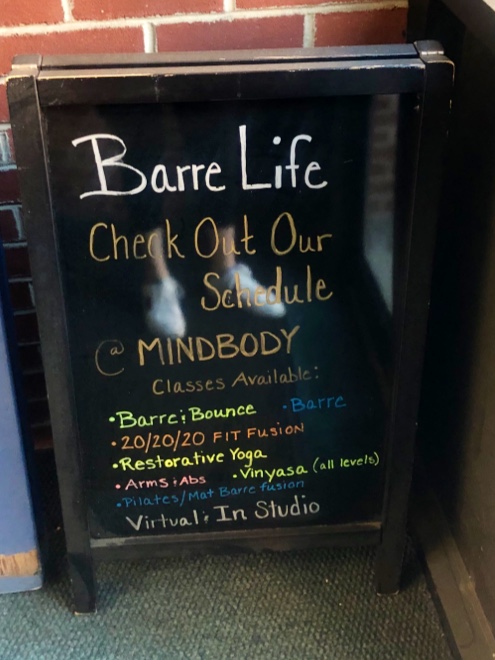 Barre Life
Check Out Our
Schedule
@ MINDBODY
Classes Available:
• Barre & Bounce • Barre
• 20/20/20 FIT FUSION
• Restorative Yoga
• Arms & Abs • Vinyasa (all levels)
• Pilates/Mat Barre fusion
Virtual & In Studio